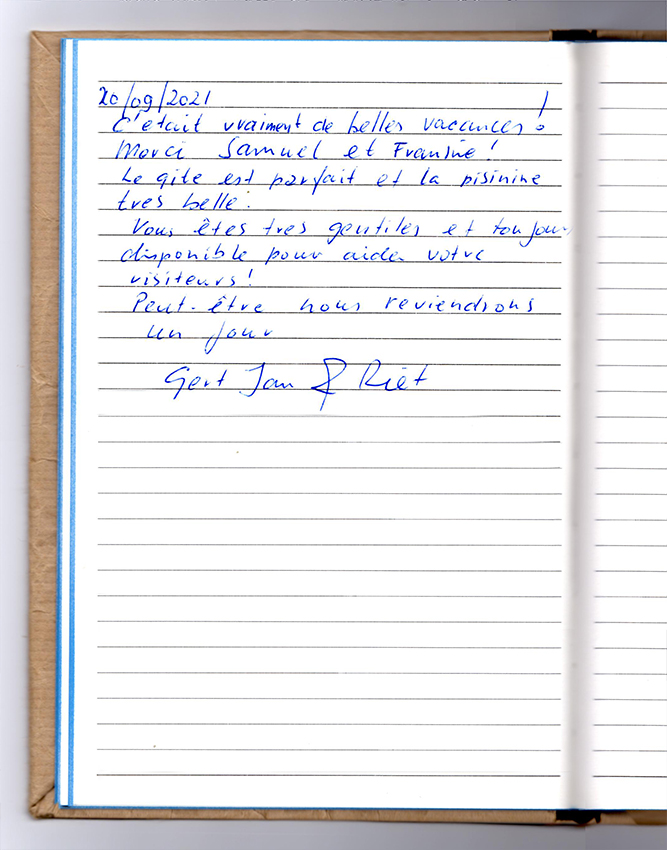 20/09/2021
C'était vraiment de belles vacances!
Merci Samuel et Franine!
Le gite est parfait et la pisinine
tres belle.
Vous êtes tres gentiles et toujours
disponible pour aider votre
visiteurs!
Peut-être nous reviendrons
un jour
Gert Jan & Riet